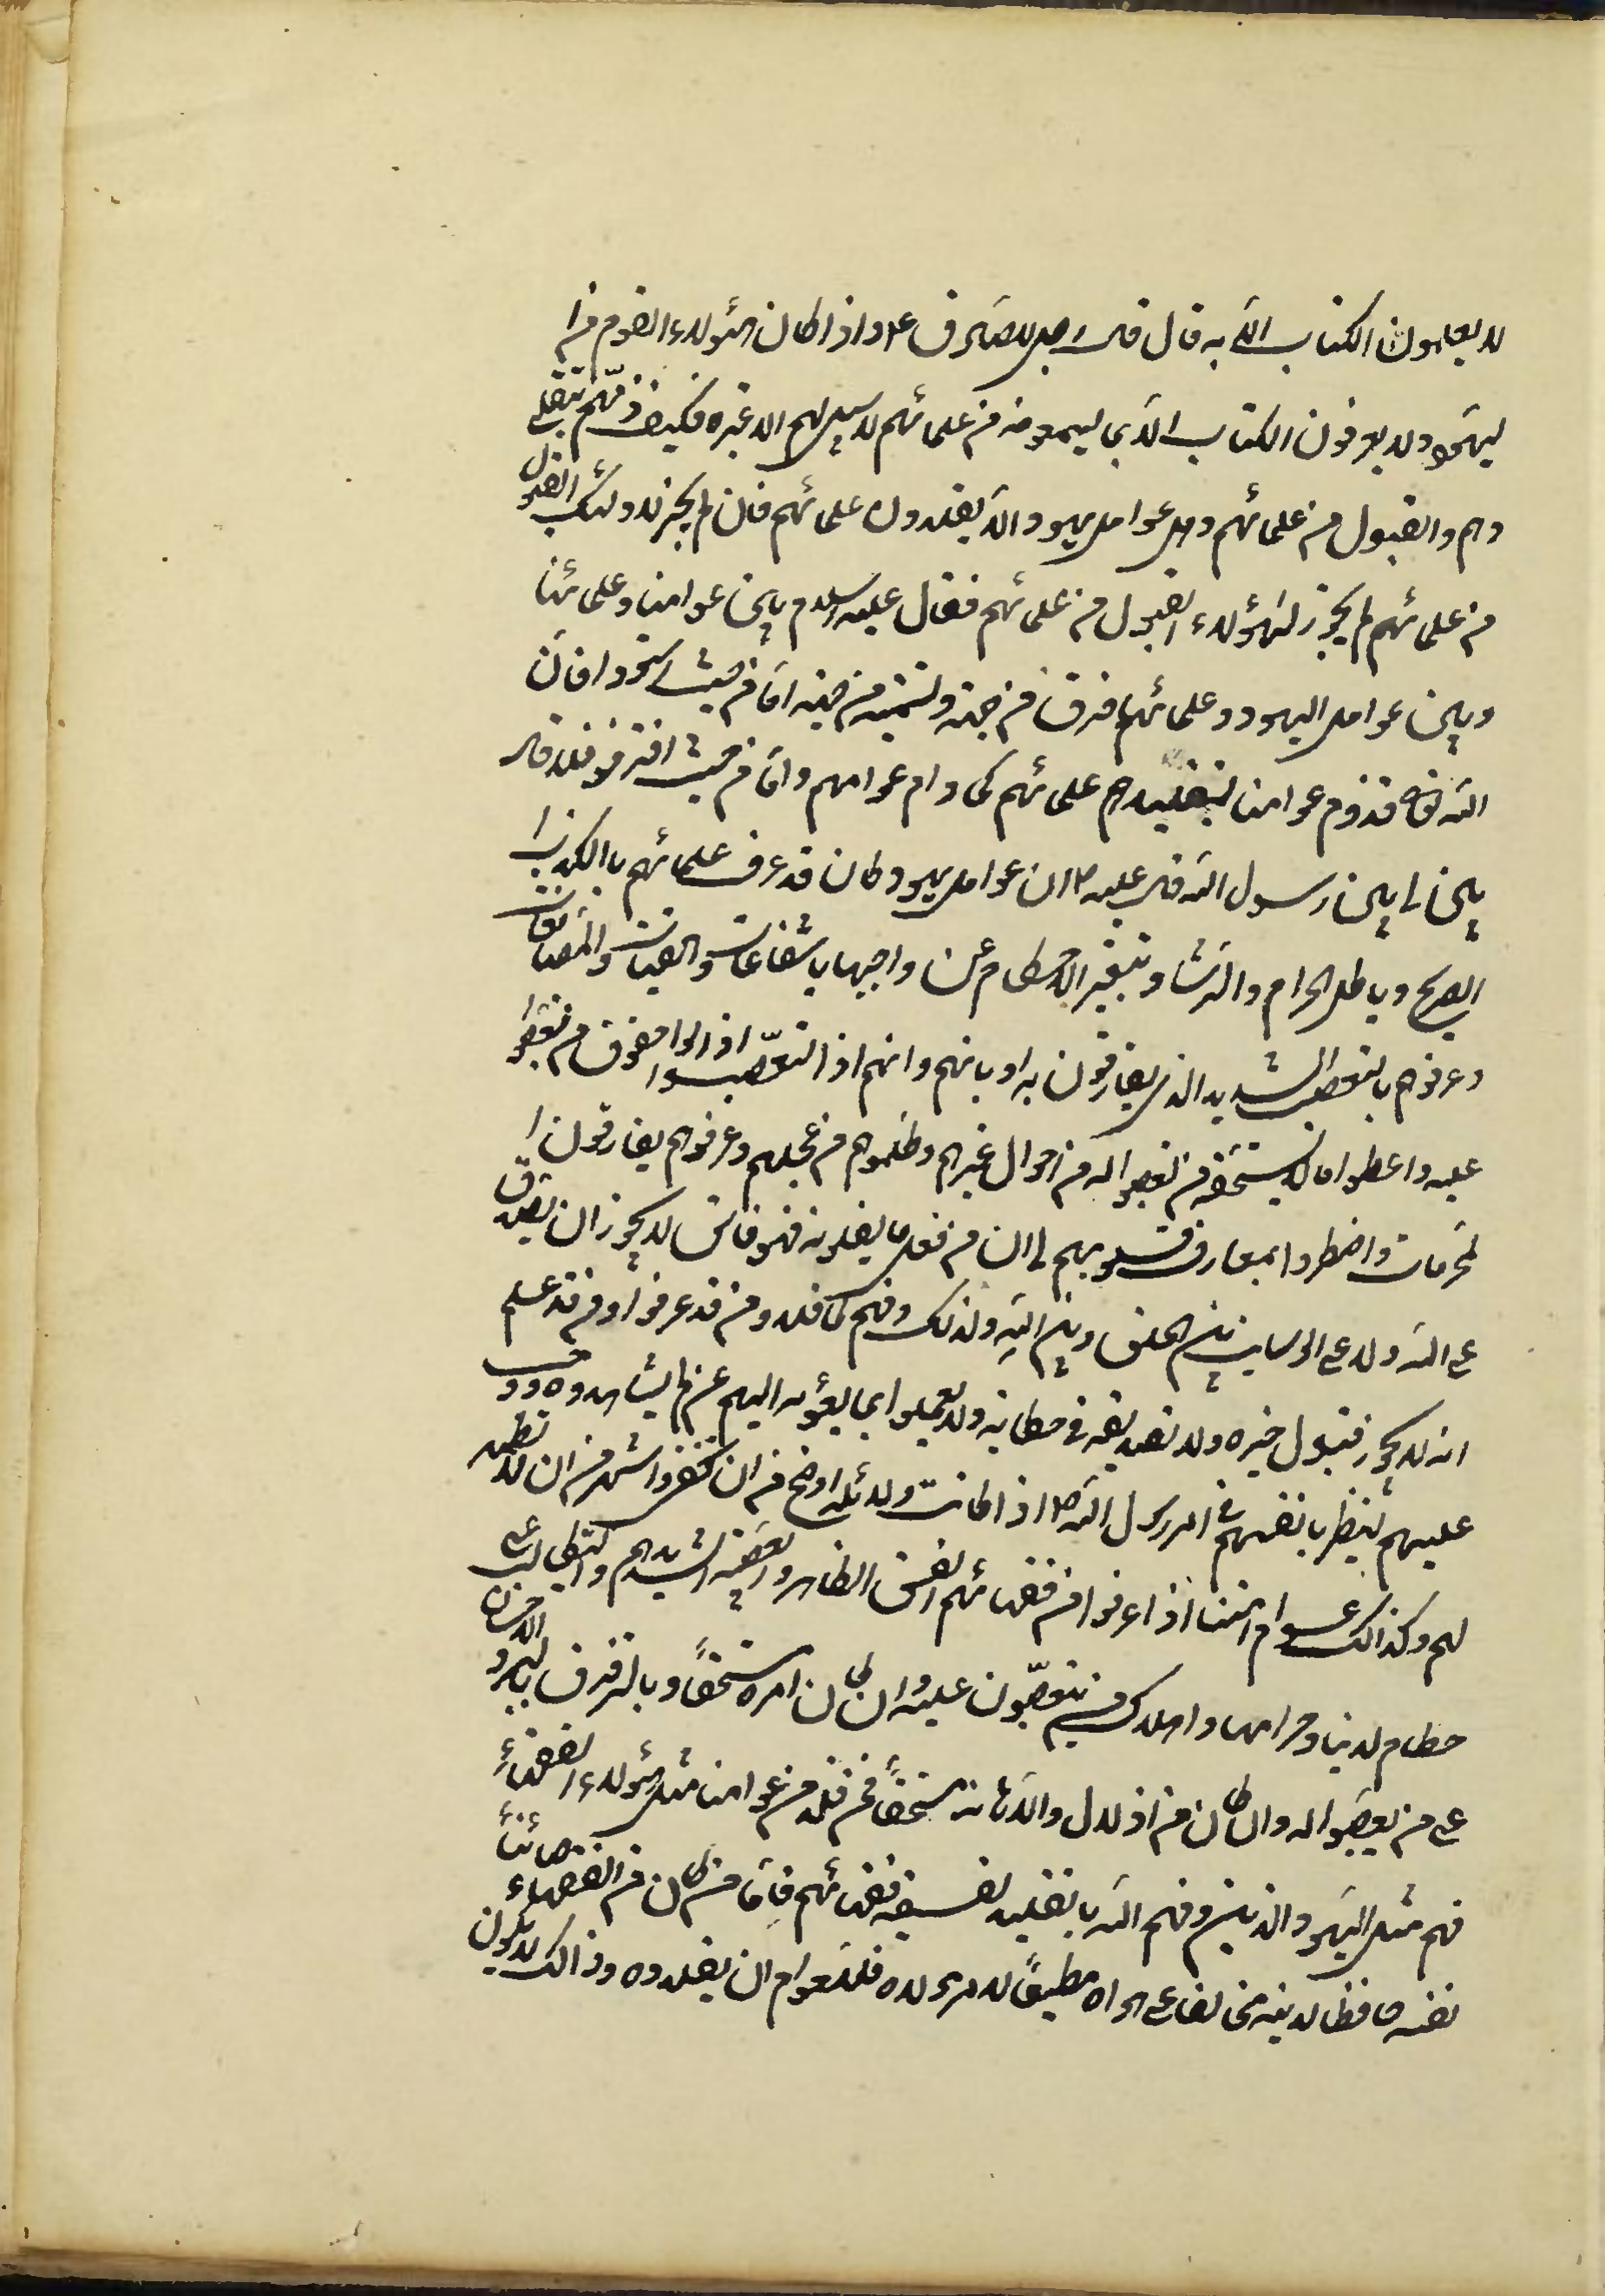 لا يعلمون الكتاب الآيه قال قال رجل للصادق ع واذا كان هؤلاء القوم من ا
ليهود لا يعرفون الكتاب الذي ليسمعونه من علمائهم لا سبيل لهم الا غيره فكيف ذمّهم بتقلي
دهم والقبول من علمائهم وهل عوام اليهود الا يقلدون علمائهم فان لم يجز لاولئك القبول
من علمائهم لم يجز لهؤلاء القبول من علمائهم فقال عليه السلام بين عوامنا وعلمائنا
وبين عوام اليهود وعلمائهم فرق من جهة وتسوية من جهة امّا من حيث استووا فانّ
الله تعالى قد ذم عوامنا بتقليدهم علمائهم كما ذم عوامهم وامّا من حيث افترقوا فلا قال
بيّن لي يابن رسول الله قال عليه السلام ان عوام اليهود كان قد عرف علمائهم بالكذب ا
لصريح وباكل الحرام والرشا وبتغيير الاحكام عن واجبها بالشفاعات والعنايات والمصانعات
وعرفوهم بالتعصب الشديد الذي يفارقون به اديانهم وانهم اذا تعصّبوا ازالوا حقوق من تعصبوا
عليه واعطوا ما لا يستحقه من تعصبوا له من اموال غيرهم وظلموهم من اجلهم وعرفوهم يقارفون ا
لمحرمات واضطروا بمعارف قلوبهم الى ان من فعل ما يفعلونه فهو فاسق لا يجوز ان يصدق
على الله ولا على الوسايط بين الخلق وبين الله ولذلك ذمهم لما قلدوا من قد عرفوا ومن قد علم
انه لا يجوز قبول خبره ولا تصديقه في حكايته ولا لعمل بما يؤديه اليهم عن لم يشاهدوه ووجب
عليهم النظر بانفسهم في امر رسول الله ص اذ كانت دلائله اوضح من ان تخفى واشهر من ان لا تظهر
لهم وكذالك عوام امتنا اذا عرفوا من فقهائهم الفسق الظاهر والعصبية الشديدهم والتكالب على
حطام الدنيا وحرامها واهلاك من يتعصّبون عليه وان كان لاصلاح امره مستحقاً وبالترفرف بالبر والاحسان
على من تعصبوا له وان كان من الاذلال والاهانة مستحقاً فمن قلد من عوامنا مثل هؤلاء الفقهاء
فهم مثل اليهود الذين ذمهم الله بالتقليد لفسقه فقهائهم فامّا من كان من الفقهاء صائناً
نفسه حافظا لدينه مخالفا على هواه مطيعاً لامر مولاه فللعوام ان يقلدوه وذالك لا يكون